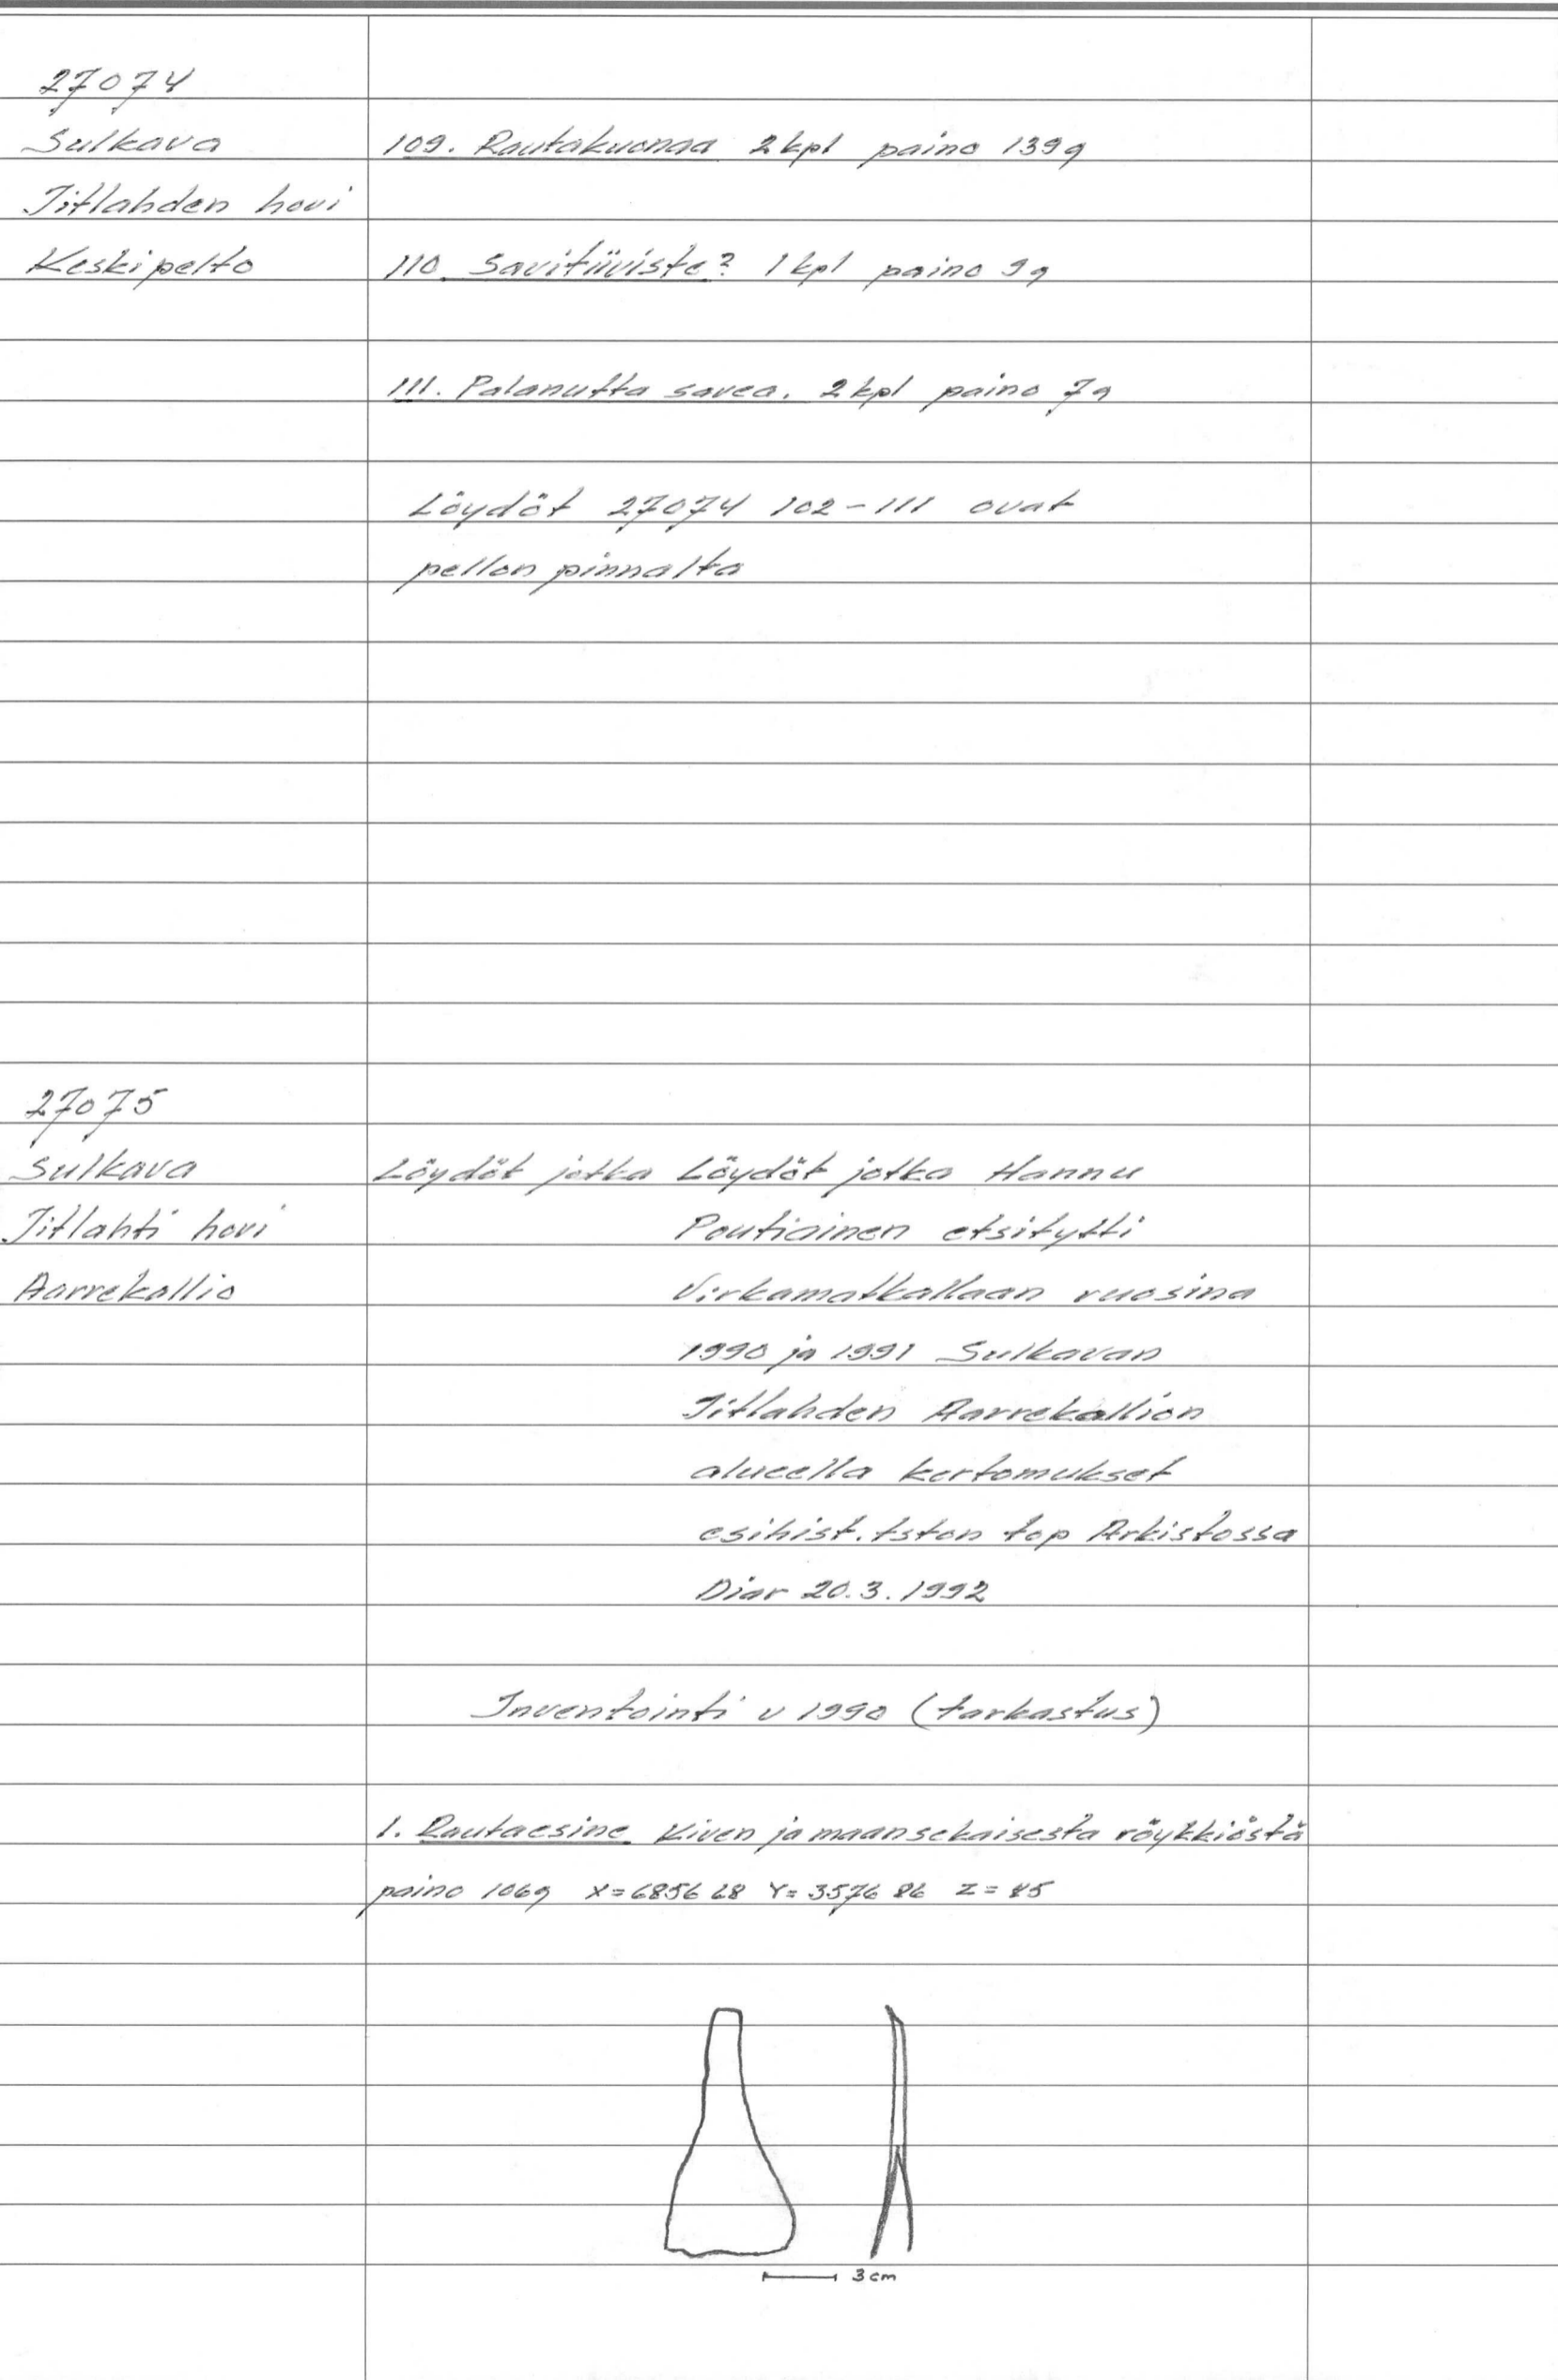 27074
Sulkava
109. Rautakuonaa 2 kpl paino 139g
Iitlahden hovi
Keskipelto
110. Savitiiviste? 1 kpl paino 9g
111. Palanutta savea. 2 kpl paino 7g
Löydöt 27074 102-111 ovat
pellon pinnalta
27075
Sulkava
Löydöt jotka Löydöt jotka Hannu
Iitlahti hovi
Poutiainen etsitytti
Aarrekallio
Virkamatkallaan vuosina
1990 ja 1991 Sulkavan
Iitlahden Aarrekallion
alueella kertomukset
esihist.tston top Arkistossa
Diar 20.3.1992
Inventointi v 1990 (tarkastus)
1. Rautaesine Kiven ja maansekaisesta röykkiöstä
paino 106g X=6856 28 Y=3576 86 Z=85
3 cm